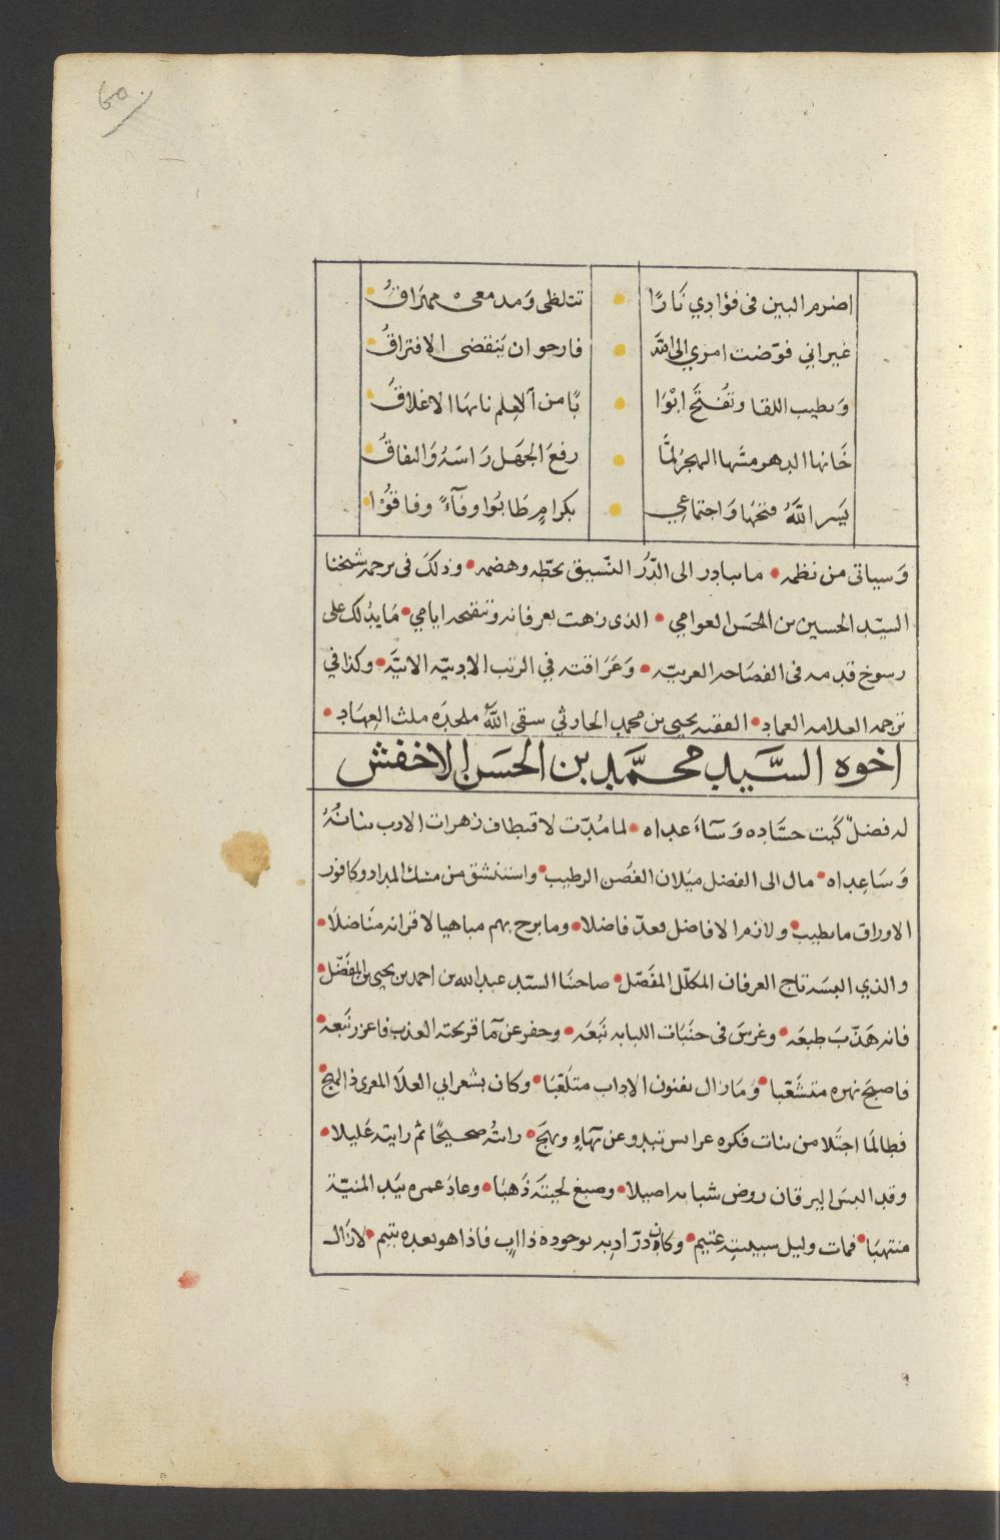 اضرم البين فى فؤادي نَارًا • تتلظى وَمدمعى مهرَاقُ
غيراني فوّضت امري الى اللَّه • فارجوان يَنقضى الافتراقُ
وَيطيب اللقا وتُفتَح ابْوَا • بًا من العِلم نابهَا الاغلاقُ
خَانها الدهر مسّها الهجرُ لمَّا • رفعَ الجهَل رَاسَهُ وَالنفاقُ
يَسر اللَّهُ فتحهَا وَاجتماعِي • بكرامٍ طَابُوا وفآءً وفاقوُا
وَسياتى من نظمه • مايبادر الى الدّرُ النّسيق بحَطّه وهضمه • وذلكَ فى ترجمة شيخنا
السيّد الحسين بن الحسَن العوامي • الذى زهت بعرفانه وتنقيحه ايامي • مَا يدُلك على
رسوخ قدمه فى الفصَاحه العربيّه • وَعَرَاقته في الرتب الادبيّه الابيَّة • وكذا في
ترجمه العلامه العماد • الفقيه يحيى بن محمد الحارثي سقى اللَّهُ ملحدَه ملث العِهَاد •
اخوه السَّيد محمَّد بن الحسَن الاخفش
له فضلٌ كَبت حسَّاده وَسآءَ عداه • لما مُدّت لاقتطاف زهرات الادب بنانُهُ
وَسَاعداه • مال الى الفضل ميَلان الغصُن الرطيب • واستنشق من مسك المداد وكافور
الاوراق مايطيب • ولازم الافاضل فعدّ فاضلا • ومابرح بهم مباهيا لاقرانه منَاضلَا •
والذي البسَه تاج العرفان المكلّل المفَصّل • صاحبنَا السيّد عبد الله بن احمد بن يحيى بن المفَضّل •
فانه هَذّبَ طبعَه • وغرسَ فى جنبَات اللبابه نَبعَه • وحفر عن مآ قريحته العذب فاعزر نَبعَه •
فاصبحَ نهره متشعّبا • وَمَازال بفنون الاداب متلَعّبَا • وكان بشعرابي العلَا المعرى ذا لهج •
فطالمَا اجتَلا من بنات فكره عرايس تبدوعن بَهآءٍ وبهَج • رايتُه صحيحًا ثم رايته عَليلا •
وقد البسَ اليرقان روض شبابه اصيلا • وصبغ لحيتهَ ذَهبَا • وعادَ عمره بيَد المنيّة
منتهبَا • فمات وليل سبيبته عتيم • وكان درّ ادبه بوجوده ذااب فاذاهو بعده يتيم • لازَال